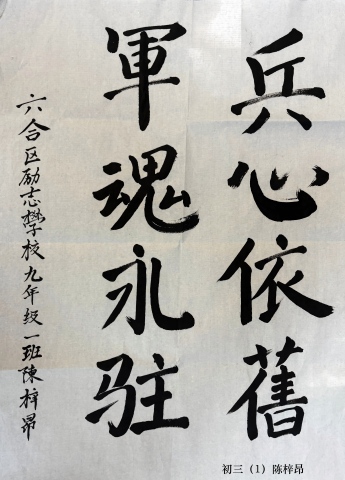 兵心依舊
軍魂永驻
六合区励志學校九年级一班陳梓昂
初三（1）陈梓昂